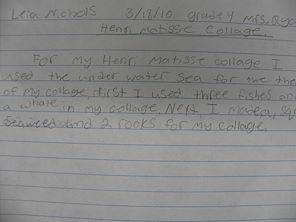 Leia Nichols 3/18/10 grade 4 Mrs. Ryc
Henri Matisse Collage.
For my Henri Matisse collage I
used the under water sea for the the
of my collage. First I used three fishes an
a whale in my collage. Next, I made a, sq
seaweed and 2 rocks for my collage.